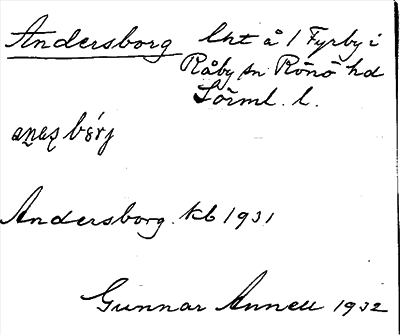 Andersborg lht å 1 Fyrby i
Råby sn Rönö hd
Sörml. l.
Andersborg. kb 1931
Gunnar Annell 1932